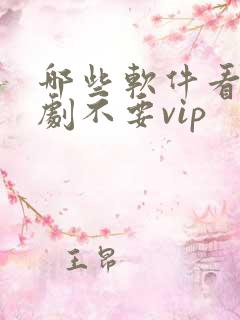 哪些軟件看
劇不要vip
王昂